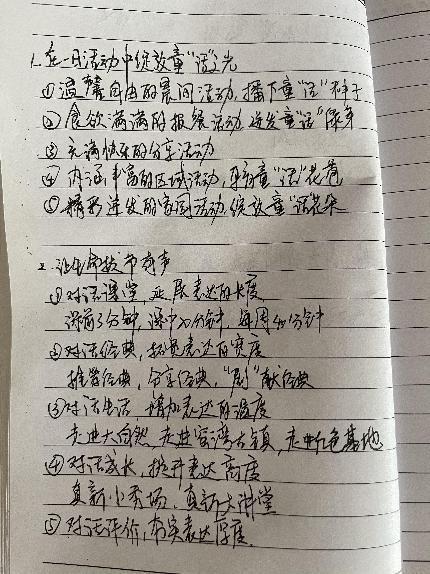 1、在一日活动中绽放童"话"之光
①温馨自由的晨间活动,播下童"话"种子
②食欲满满的报餐活动,迸发童"话"绿芽
③充满快乐的分享活动
④内涵丰富的区域活动,孕育童"话"花苞
⑤精彩迸发的家园活动,绽放童"话"花朵
2、让生命拔节有声
①对话课堂,延展表达的长度
课前3分钟,课中20分钟,每周40分钟
②对话经典,拓宽表达的宽度
推荐经典,分享经典,"剧"献经典
③对话生活,增加表达的温度
走进大自然,走进古镇,走进红色基地
④对话成长,提升表达高度
真新小秀场,真新大讲堂
⑤对话评价,夯实表达厚度